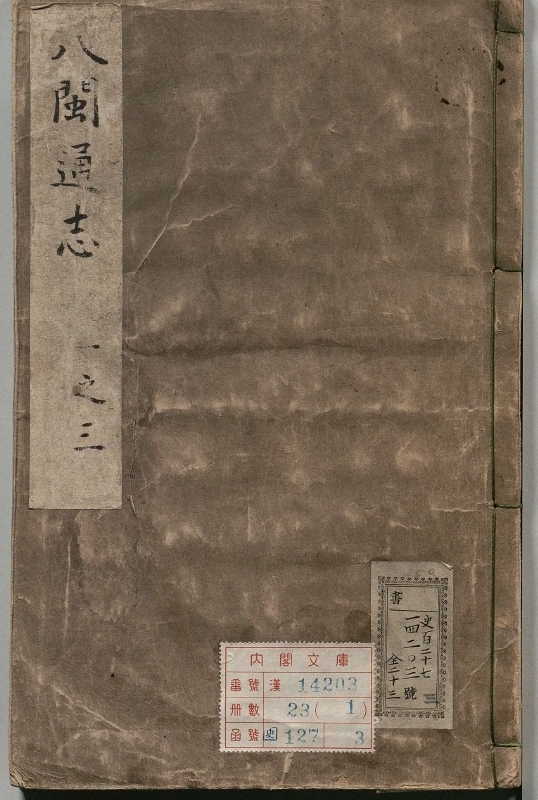 八閩通志
一之三
書
史百二十七
一四二〇三號
全二十三
三
内閣文庫
番號 漢 14203
冊數 23(1)
函號 史 127 3